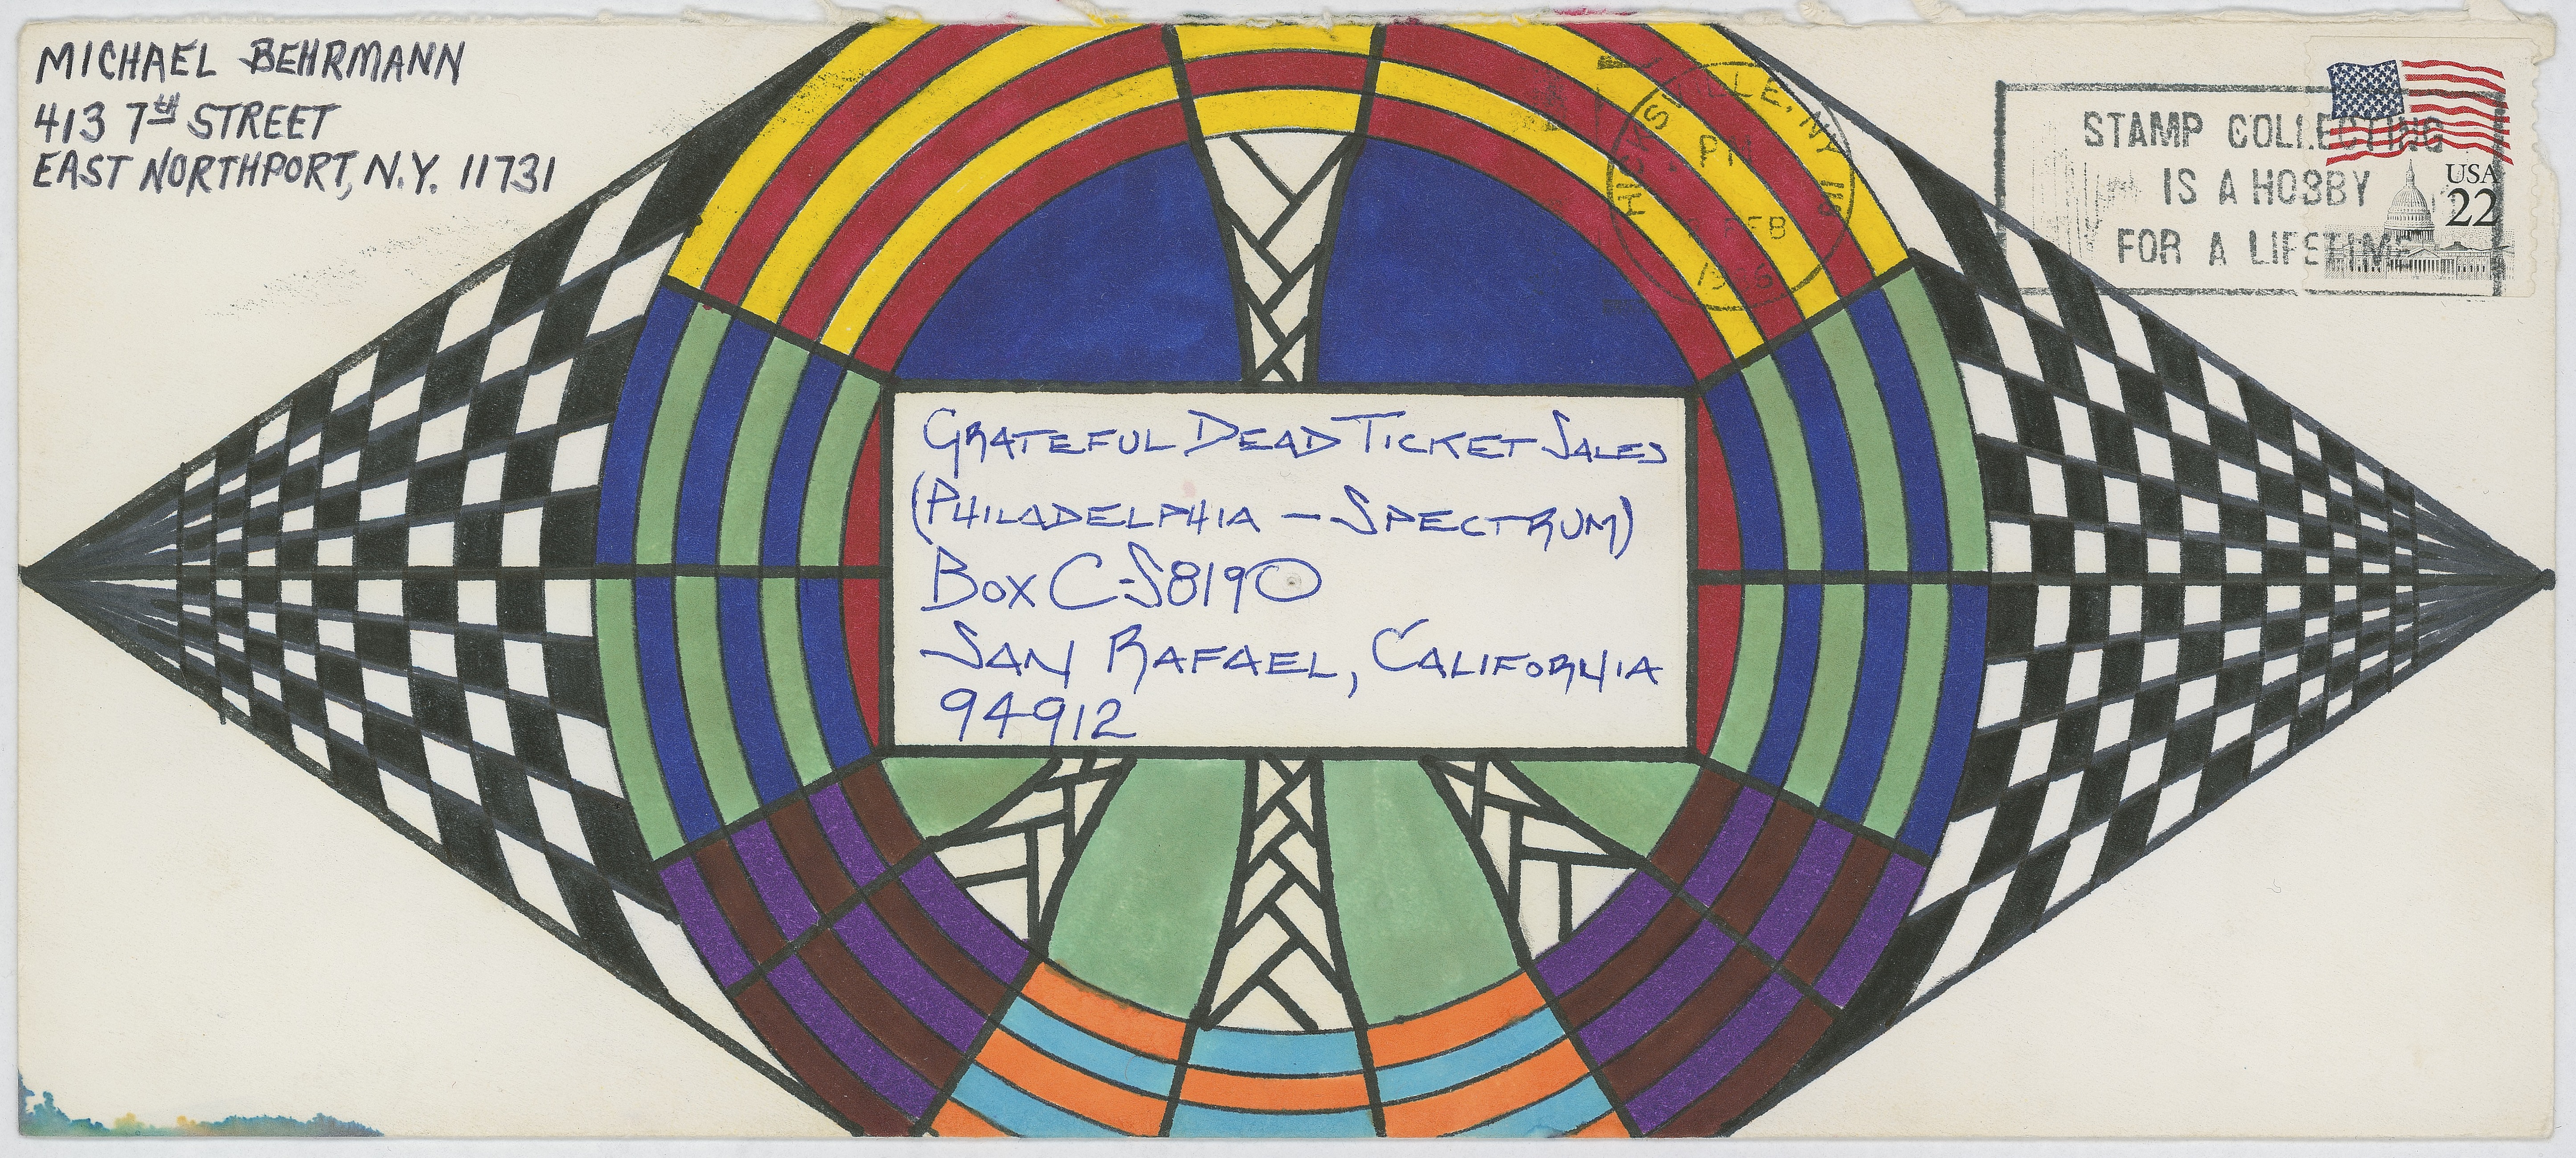 MICHAEL BEHRMANN
413 7th STREET
EAST NORTHPORT, N.Y. 11731
HICKSVILLE, NY
PM
FEB
STAMP COLLECTING
IS A HOBBY
FOR A LIFETIME
USA
22
GRATEFUL DEAD TICKET SALES
(PHILADELPHIA – SPECTRUM)
BOX C-S8190
SAN RAFAEL, CALIFORNIA
94912